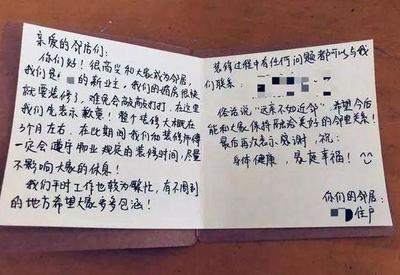 亲爱的邻居们：
你们好！很高兴和大家成为邻居，
我们是 的新业主，我们的厨房很快
就要装修了，难免会敲敲打打，在这里
我们先表示歉意！整个装修大概在
3个月左右，在此期间我们和装修师傅
一定会遵守物业规定的装修时间，尽量
不影响大家的休息！
我们平时工作也较为繁忙，有不周到
的地方希望大家多多包涵！
装修过程中有任何问题都可以与我
们联系：
俗话说"远亲不如近邻"，希望今后
能和大家保持融洽美好的邻里关系！
最后再次表示感谢，祝：
身体健康，家庭幸福！
你们的邻居：
住户